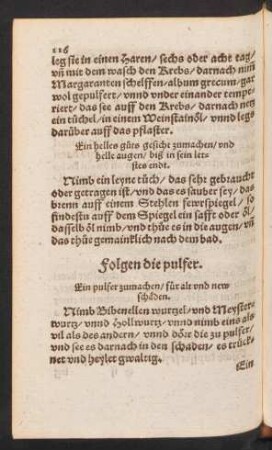 116
leg sie in einen Haren / sechs oder acht tag /
vñ mit dem wasch den Krebs / darnach nim̃
Margaranten schelffen / album grecum / gar
wol gepulfert / vnnd vnder einander tempe-
riert / das see auff den Krebs / darnach netz
ein tüchel / in einem Weinstainöl / vnnd legs
darüber auff das pflaster.
Ein helles gůts gesicht zumachen / vnd
helle augen / biß in sein letz-
stes endt.
Nimb ein leyne tůch / das sehr gebraucht
oder getragen ist / vnd das es sauber sey / das
brenn auff einem Stehlen fewrspiegel / so
findestu auff dem Spiegel ein safft oder öl /
dasselb öl nimb / vnd thůe es in die augen / vñ
das thůe gemainklich nach dem bad.
Folgen die pulfer.
Ein pulfer zumachen / für alt vnd new
schäden.
Nimb Bibenellen wurtzel / vnd Meyster-
wurtz / vnnd Hollwurtz / vnnd nimb eins als
vil als des andern / vnnd dörr die zu pulfer /
vnd see es darnach in den schaden / es trück-
net vnd heylet gwaltig.
Ein